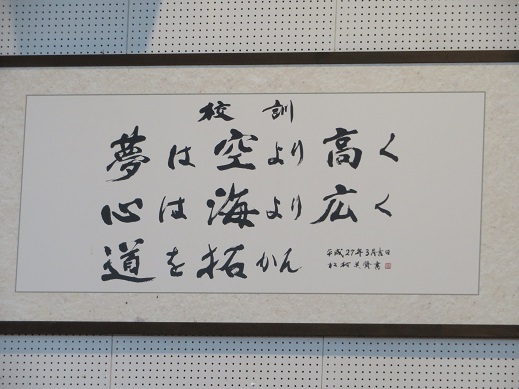 校訓
夢は空より高く
心は海より広く
道を拓かん
平成27年3月吉日